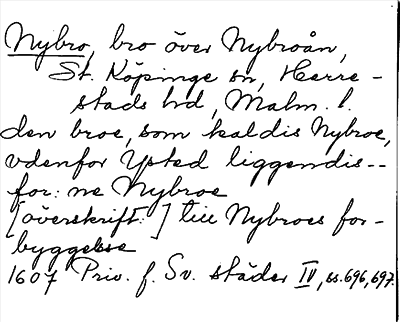 Nybro, bro över Nybroån,
St. Köpinge sn, Herre-
stads hd, Malm. l.
den broe, som kaldis Nybroe,
vdenfor Ysted liggendis--
for: ne Nybroe
[överskrift:] till Nybroes for-
byggelsse
1607 Priv. f. Sv. städer IV, ss. 696, 697.